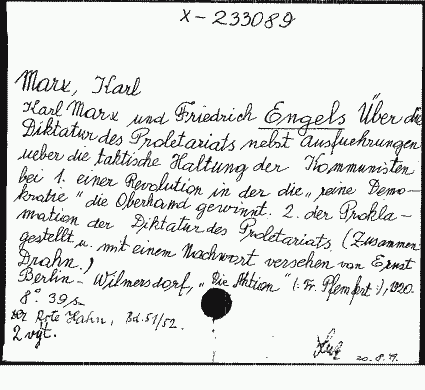 X-233089
Marx, Karl
Karl Marx und Friedrich Engels Über die
Diktatur des Proletariats nebst Ausfuehrungen
ueber die taktische Haltung der Kommunisten
bei 1. einer Revolution in der die „reine Demo-
kratie" die Oberhand gewinnt. 2. der Prokla-
mation der Diktatur des Proletariats (Zusammen
gestellt u. mit einem Nachwort versehen von Ernst
Drahn.)
Berlin-Wilmersdorf, „Die Aktion" (: Fr. Pfemfert :), 1920.
8° 39 s.
Der Rote Hahn, Bd. 51/52.
2 vgt.
20.8.